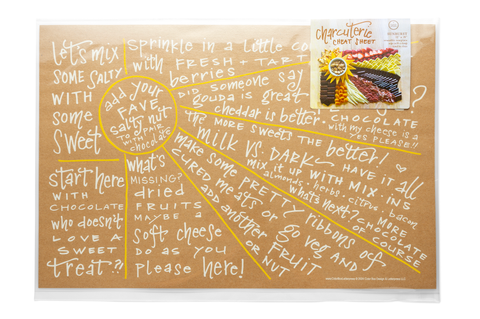 let's mix
SOME SALTY
WITH
some
sweet
sprinkle in a little
with FRESH + TART
berries
DID someone say
gouda is great
cheddar is better. CHOCOLATE
with my cheese is a
YES PLEASE!!
?
THE MORE SWEETS THE better!
add your
FAVE
salty nut
TO PAIR
with
chocolate
milk VS. DARK HAVE IT all
mix it up WITH MIX-INS
almonds. herbs. citrus. bacon
what's next? MORE
CHOCOLATE
OF COURSE
make some PRETTY ribbons of
CURED meats or go veg AND
add another FRUIT
OR NUT
what's
MISSING?
dried
FRUITS
MAYBE a
soft cheese
DO as YOU
please here!
start here
WITH
CHOCOLATE
who doesn't
LOVE A
SWEET
treat??
charcuterie
CHEAT SHEET